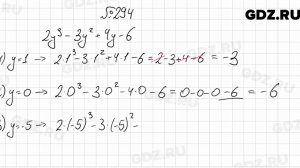 №294
GDZ.RU
2y³ - 3y² + 4y - 6
) y=1 → 2·1³ - 3·1² + 4·1 - 6 = 2 - 3 + 4 - 6 = -3
) y=0 → 2·0³ - 3·0² - 4·0 - 6 = 0 - 0 - 0 - 6 = -6
) y=-5 → 2·(-5)³ - 3·(-5)² -
GDZ.RU